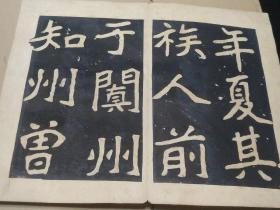 年夏其
族人前
于闐州
知州曾